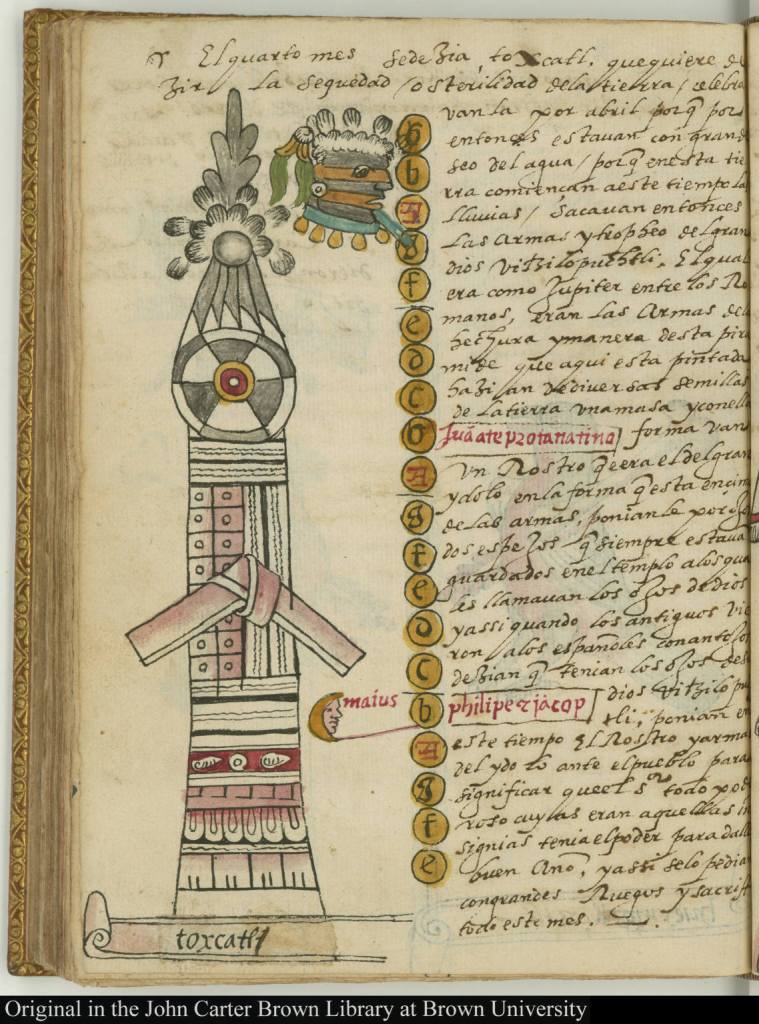 El quarto mes sedezia, toxcatl. que quiere de
zir la sequedad / o sterilidad dela tierra / celebra
van la por abril porq̃ por
entonces estavan con grand
seo del agua / porq̃ en esta tie
rra comiençan a este tiempo las
lluvias / Sacavan entonces
las armas y tropheo del gran
dios vitzilopuchtli. El qual
era como Jupiter entre los Ro
manos, eran las Armas de
hechura y manera desta pira
mide que aqui esta pintada
hazian de diversas semillas
de la tierra una masa y conella
forma van
un Rostro q̃ era el del gran
ydolo en la forma q̃ esta encim
de las armas, ponianle por ojo
dos espejos q̃ siempre estava
guardados en el templo alos qua
les llamavan los ojos de dios
y assi quando los antiguos vie
ron alos españoles con antojos
dezian q̃ tenian los ojos des
dios vitzilopu
tli, ponian en
este tiempo El Rostro y arma
del ydolo ante el pueblo para
significar que el s.or todo pode
roso cuyas eran aquellas in
signias tenia el poder para dalle
buen Año, y assi selo pedia
con grandes Ruegos y sacrif
todo este mes.
b
A
g
f
e
d
c
b
Juã ate portanatina
A
g
f
e
d
c
b
philipe z jacop
A
g
f
e
maius
toxcatl
Original in the John Carter Brown Library at Brown University